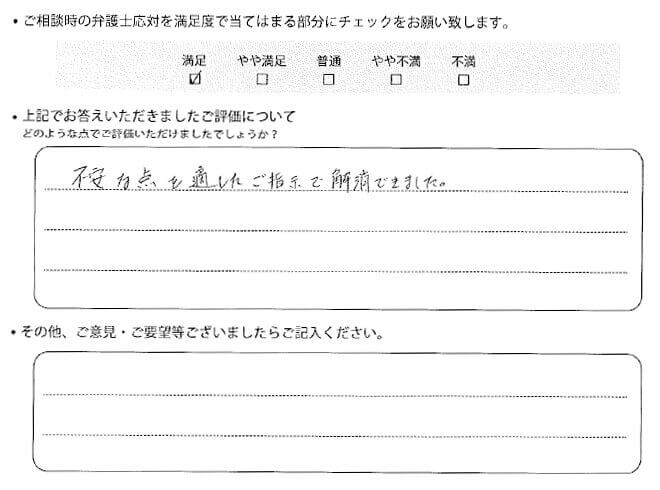 • ご相談時の弁護士応対を満足度で当てはまる部分にチェックをお願い致します。
満足 やや満足 普通 やや不満 不満
☑ ☐ ☐ ☐ ☐
• 上記でお答えいただきましたご評価について
どのような点でご評価いただけましたでしょうか？
不安な点を適したご指示で解消できました。
• その他、ご意見・ご要望等ございましたらご記入ください。